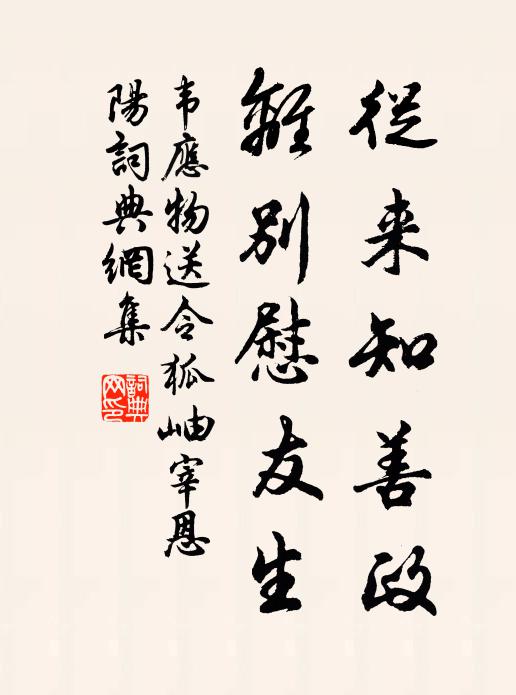 從来知善政
離別慰友生
韦應物送令狐岫宰恩
陽詞典網集
詞典
网印